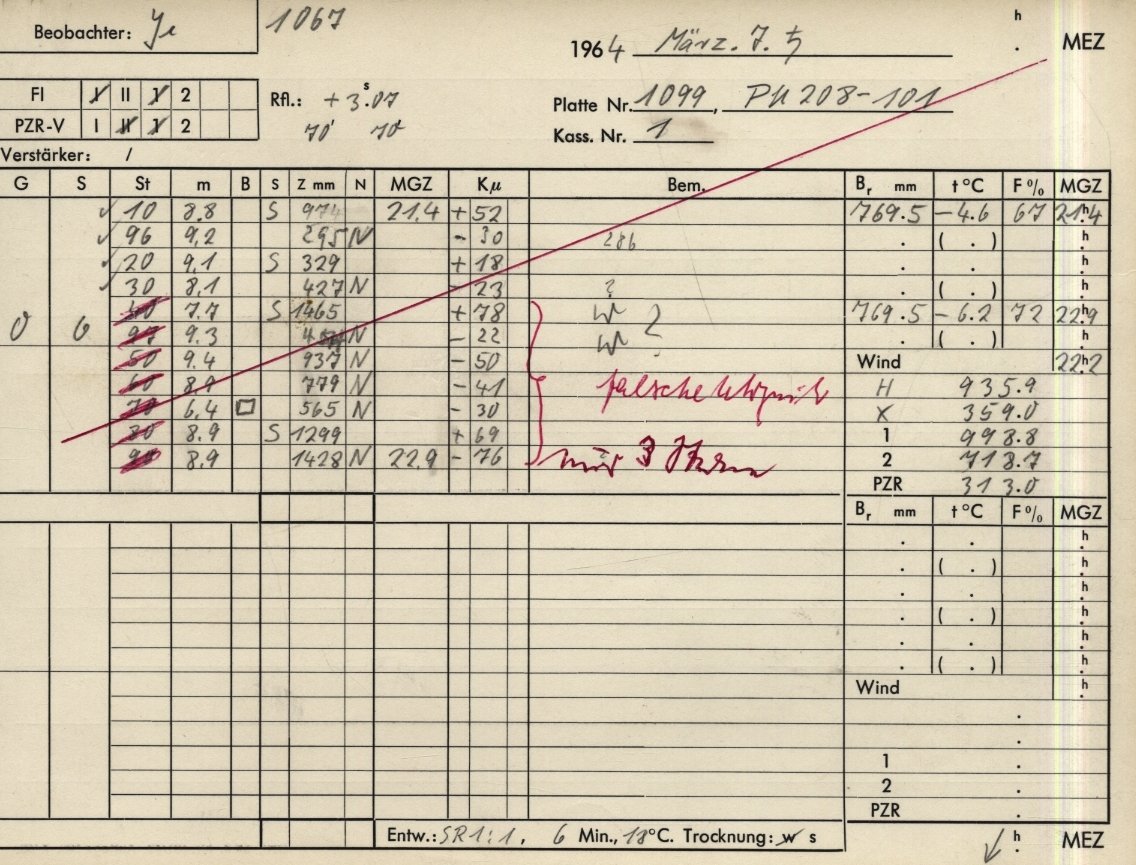 Beobachter: Je 1067
1964 März. 7. ♄ h . MEZ
FI I II 1 2 Rfl.: + 3.ˢ07 Platte Nr. 1099, PH 208-101
PZR-V I II 1 2 70' 70' Kass. Nr. 1
Verstärker: /
G S St m B S Z mm N MGZ Kμ Bem. Br mm t °C F % MGZ
✓ 10 8.8 S 974 21.4 + 52 769.5 -4.6 67 21ʰ4
✓ 96 9.2 295 N - 30 286 . ( . ) ʰ.
✓ 20 9.1 S 329 + 18 . . ʰ.
✓ 30 8.1 427 N - 23 ? . ( . ) ʰ.
40 7.7 S 1465 + 78 W ? 769.5 -6.2 72 22ʰ9
0 6 97 9.3 N - 22 W . ( . ) ʰ.
50 9.4 937 N - 50 Wind 22ʰ2
60 8.9 779 N - 41 falsche H 935.9
70 6.4 □ 565 N - 30 X 359.0
80 8.9 S 1299 + 69 1 998.8
90 8.9 1428 N 22.9 - 76 nur 3 Sterne 2 718.7
PZR 313.0
Br mm t °C F % MGZ
. . ʰ.
. ( . ) ʰ.
. . ʰ.
. ( . ) ʰ.
. . ʰ.
. ( . ) ʰ.
Wind ʰ.
.
.
1 .
2 .
PZR .
Entw.: SR1:1, 6 Min., 18°C. Trocknung: w s ✓ ʰ. MEZ